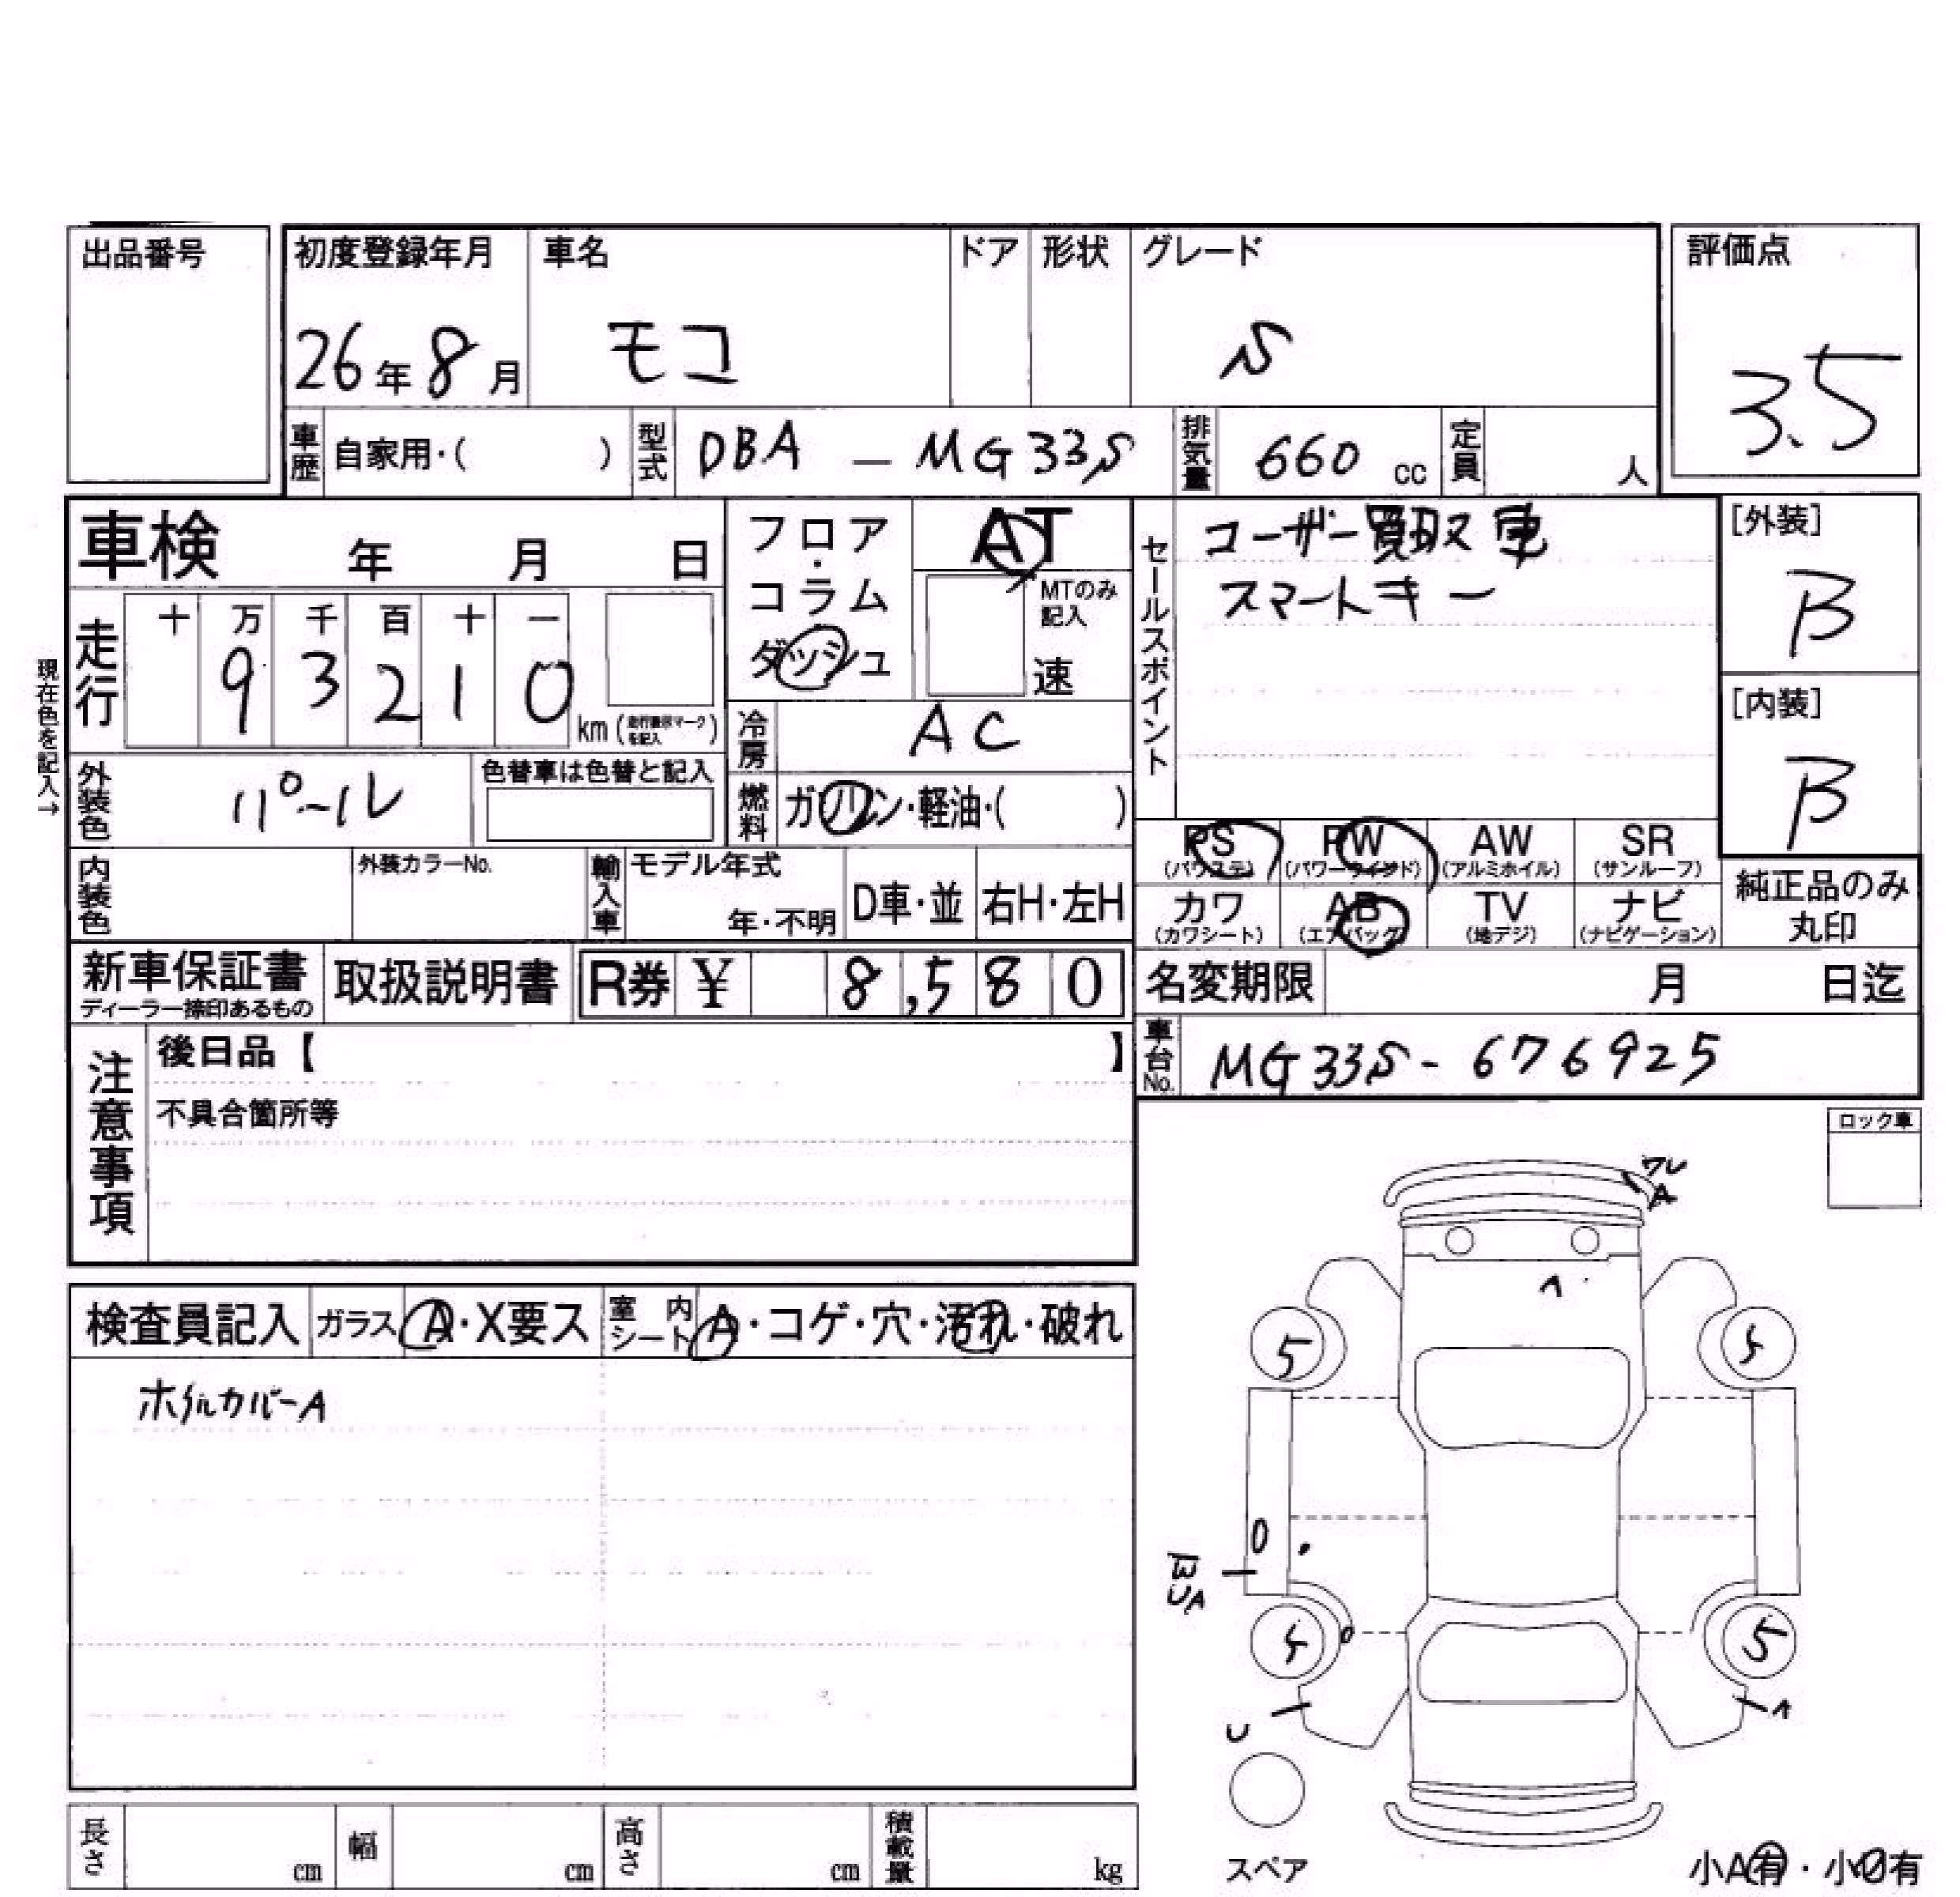 出品番号
初度登録年月 車名 ドア 形状 グレード 評価点
26年8月 モコ S 3.5
車歴 自家用・( ) 型式 DBA — MG33S 排気量 660 cc 定員 人
車検 年 月 日
フロア・コラム ダッシュ
AT
MTのみ記入
速
セールスポイント
ユーザー買取車
スマートキー
[外装]
B
[内装]
B
現在色を記入→
走行 十 万 千 百 十 一
9 3 2 1 0 km (走行表示マークを記入)
冷房 AC
外装色 パール 色替車は色替と記入
燃料 ガソリン・軽油・( )
PS (パワステ) PW (パワーウインド) AW (アルミホイル) SR (サンルーフ)
カワ (カワシート) AB (エアバッグ) TV (地デジ) ナビ (ナビゲーション)
純正品のみ丸印
内装色 外装カラーNo. 輸入車 モデル年式 年・不明 D車・並 右H・左H
新車保証書 ディーラー捺印あるもの 取扱説明書 R券 ¥ 8,580
名変期限 月 日迄
車台No. MG33S - 676925
注意事項
後日品【 】
不具合箇所等
ロック車
ワレ
A
A
5 5
検査員記入 ガラス A・X要ス 室内シート A・コゲ・穴・汚れ・破れ
ホイルカバーA
U
A
スペア
小A有・小U有
長さ cm 幅 cm 高さ cm 積載量 kg